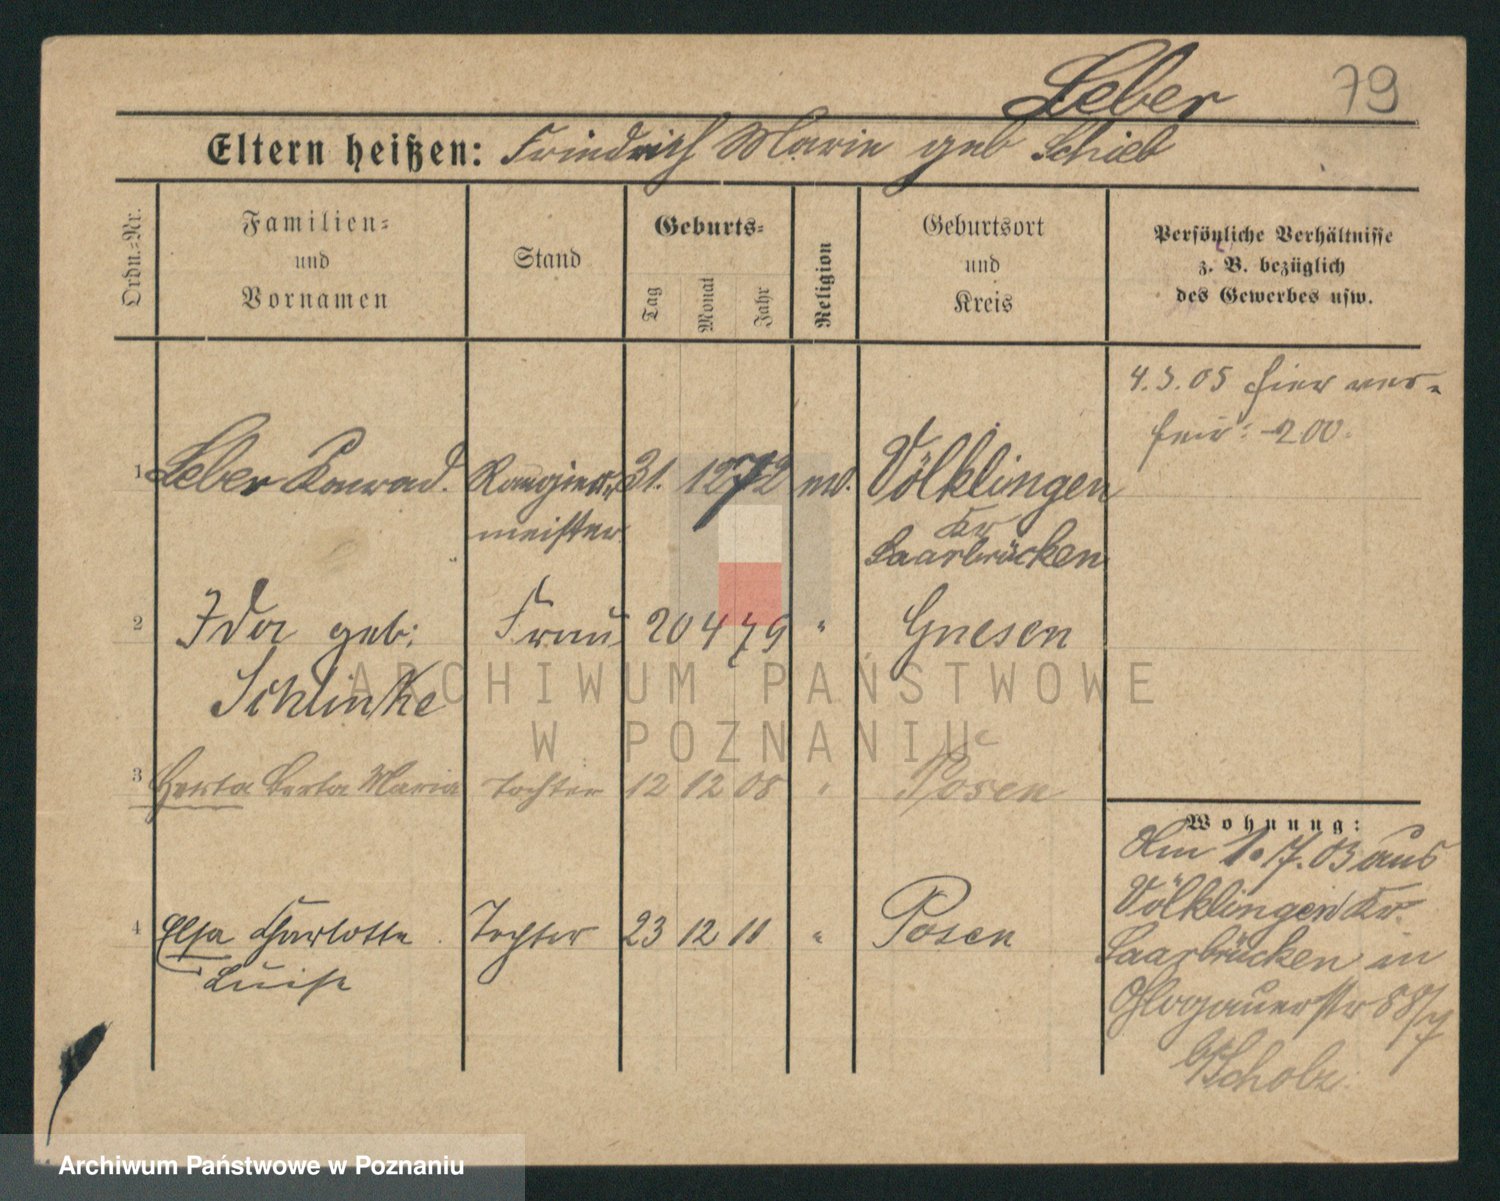 Leber 79
Eltern heißen: Friedrich Marie geb Schieb
Ordn.-Nr.
Familien-
und
Vornamen
Stand
Geburts-
Tag
Monat
Jahr
Religion
Geburtsort
und
Kreis
Persönliche Verhältnisse
z. B. bezüglich
des Gewerbes usw.
4.3.05 hier ver-
heir:
1 Leber Konrad. Rangier- 31. 12 72 Völklingen
meister Kr
Saarbrücken
2 Ida geb: Frau 20 4 79 " Gnesen
Schlinke
3 Herta Berta Maria Tochter 12 12 08 " Posen
4 Elsa Charlotte Tochter 23 12 11 " Posen
Luise
Wohnung:
Am 1.7.03 aus
Völklingen Kr.
Saarbrücken in
Glogauerstr 88/7
b/Scholz
ARCHIWUM PAŃSTWOWE
W POZNANIU
Archiwum Państwowe w Poznaniu